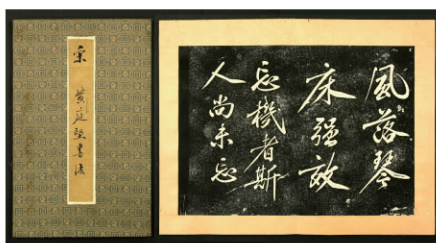 宋 黄庭坚書法
風落琴
床强效
忘機者斯
人尚未忘